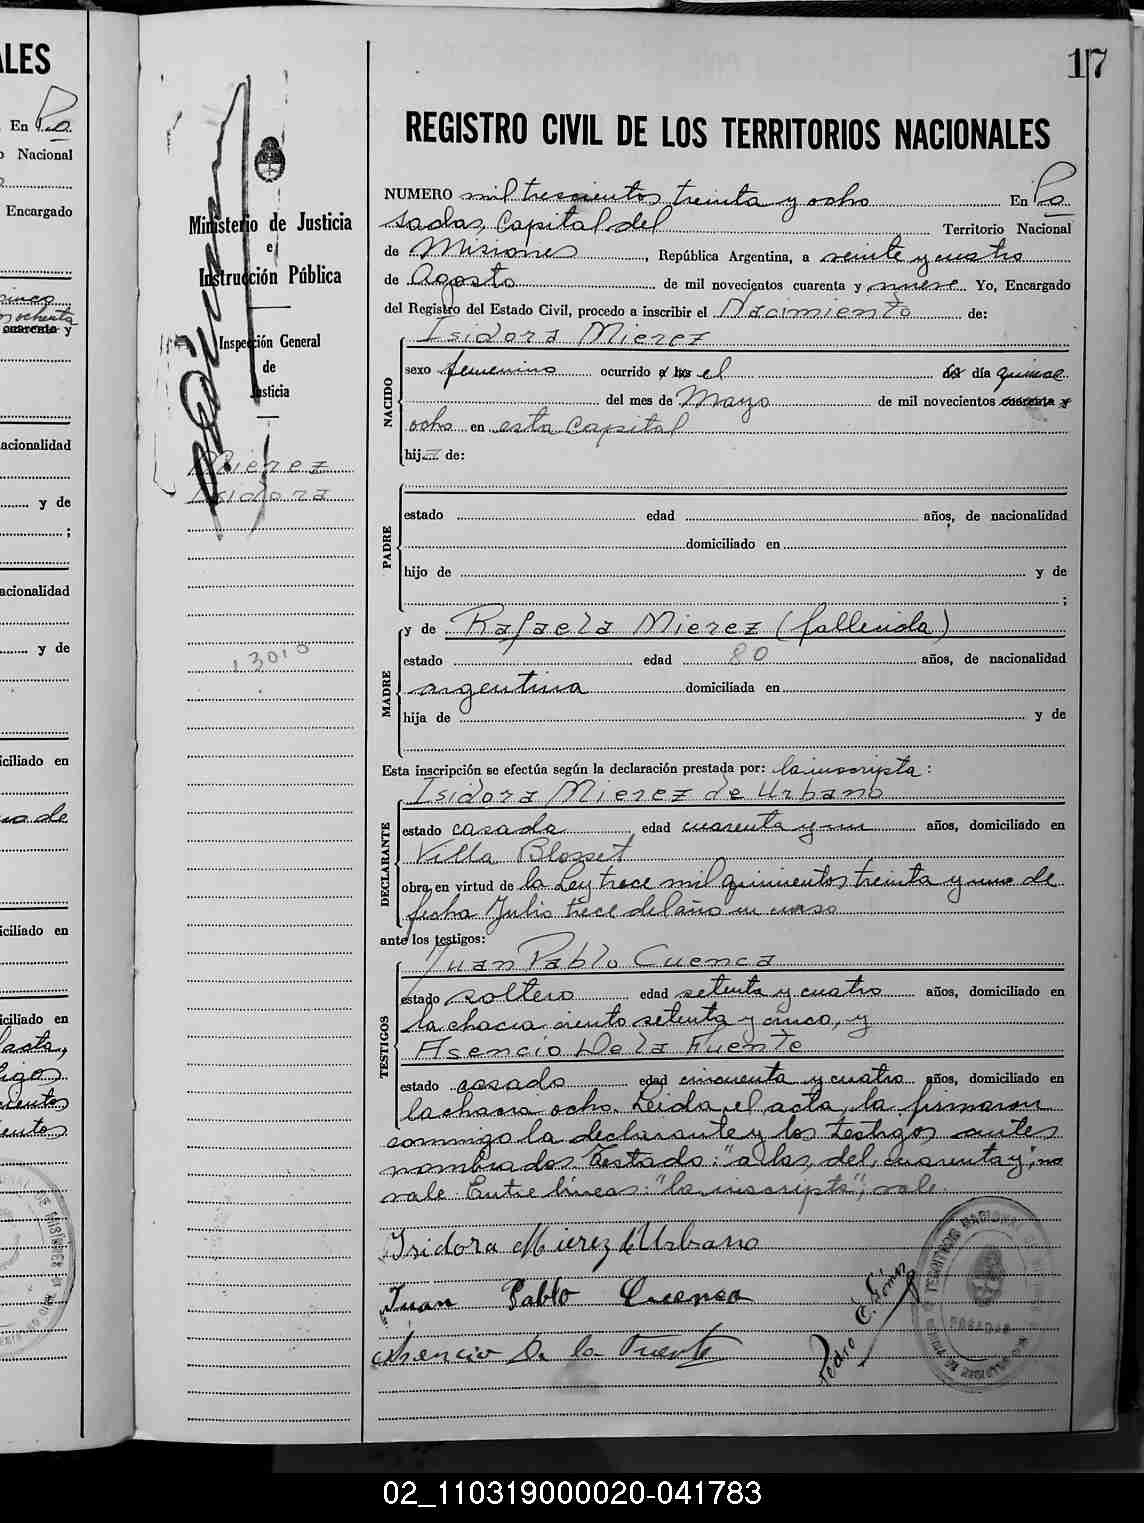 17
REGISTRO CIVIL DE LOS TERRITORIOS NACIONALES
NUMERO mil trescientos treinta y ocho En Po
sadas, Capital del Territorio Nacional
de Misiones, República Argentina, a veinte y cuatro
de Agosto de mil novecientos cuarenta y nueve Yo, Encargado
del Registro del Estado Civil, procedo a inscribir el Nacimiento de:
Isidora Mierez
NACIDO
sexo femenino ocurrido a las el del día quince
del mes de Marzo de mil novecientos cuarenta y
ocho en esta Capital
hija de:
PADRE
estado edad años, de nacionalidad
domiciliado en
hijo de y de
;
y de Rafaela Mierez (fallecida)
MADRE
estado edad 80 años, de nacionalidad
argentina domiciliada en
hija de y de
Esta inscripción se efectúa según la declaración prestada por: la inscripta :
DECLARANTE
Isidora Mierez de Urbano
estado casada edad cuarenta y un años, domiciliado en
Villa Blosset
obra en virtud de la Ley trece mil quinientos treinta y uno de
fecha Julio trece del año en curso
ante los testigos:
TESTIGOS
Juan Pablo Cuenca
estado soltero edad setenta y cuatro años, domiciliado en
la chacra ciento setenta y cinco, y
Asencio De la Fuente
estado casado edad cincuenta y cuatro años, domiciliado en
la chacra ocho. Leida el acta, la firmaron
conmigo la declarante y los testigos antes
nombrados Testado: "a las, del, cuarenta y", no
vale. Entre lineas: "la inscripta", vale.
Isidora Mierez d Urbano
Juan Pablo Cuenca
Asencio De la Fuente
Pedro C. Gómez
POSADAS
Ministerio de Justicia
e
Instrucción Pública
Inspección General
de
Justicia
Mierez
Isidora
ALES
En Po
Nacional
Encargado
cinco
ochenta
cuarenta y
acionalidad
y de
;
acionalidad
y de
iciliado en
de
iciliado en
iciliado en
acta,
02_110319000020-041783